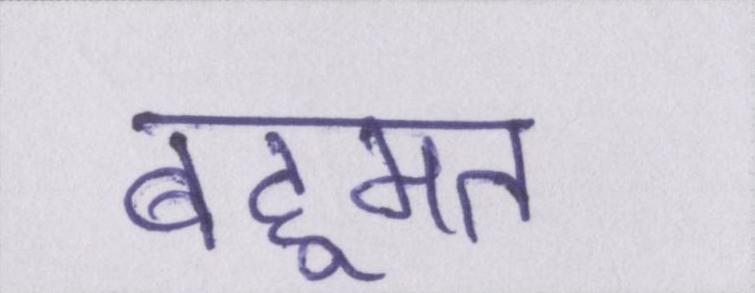 बहूमत